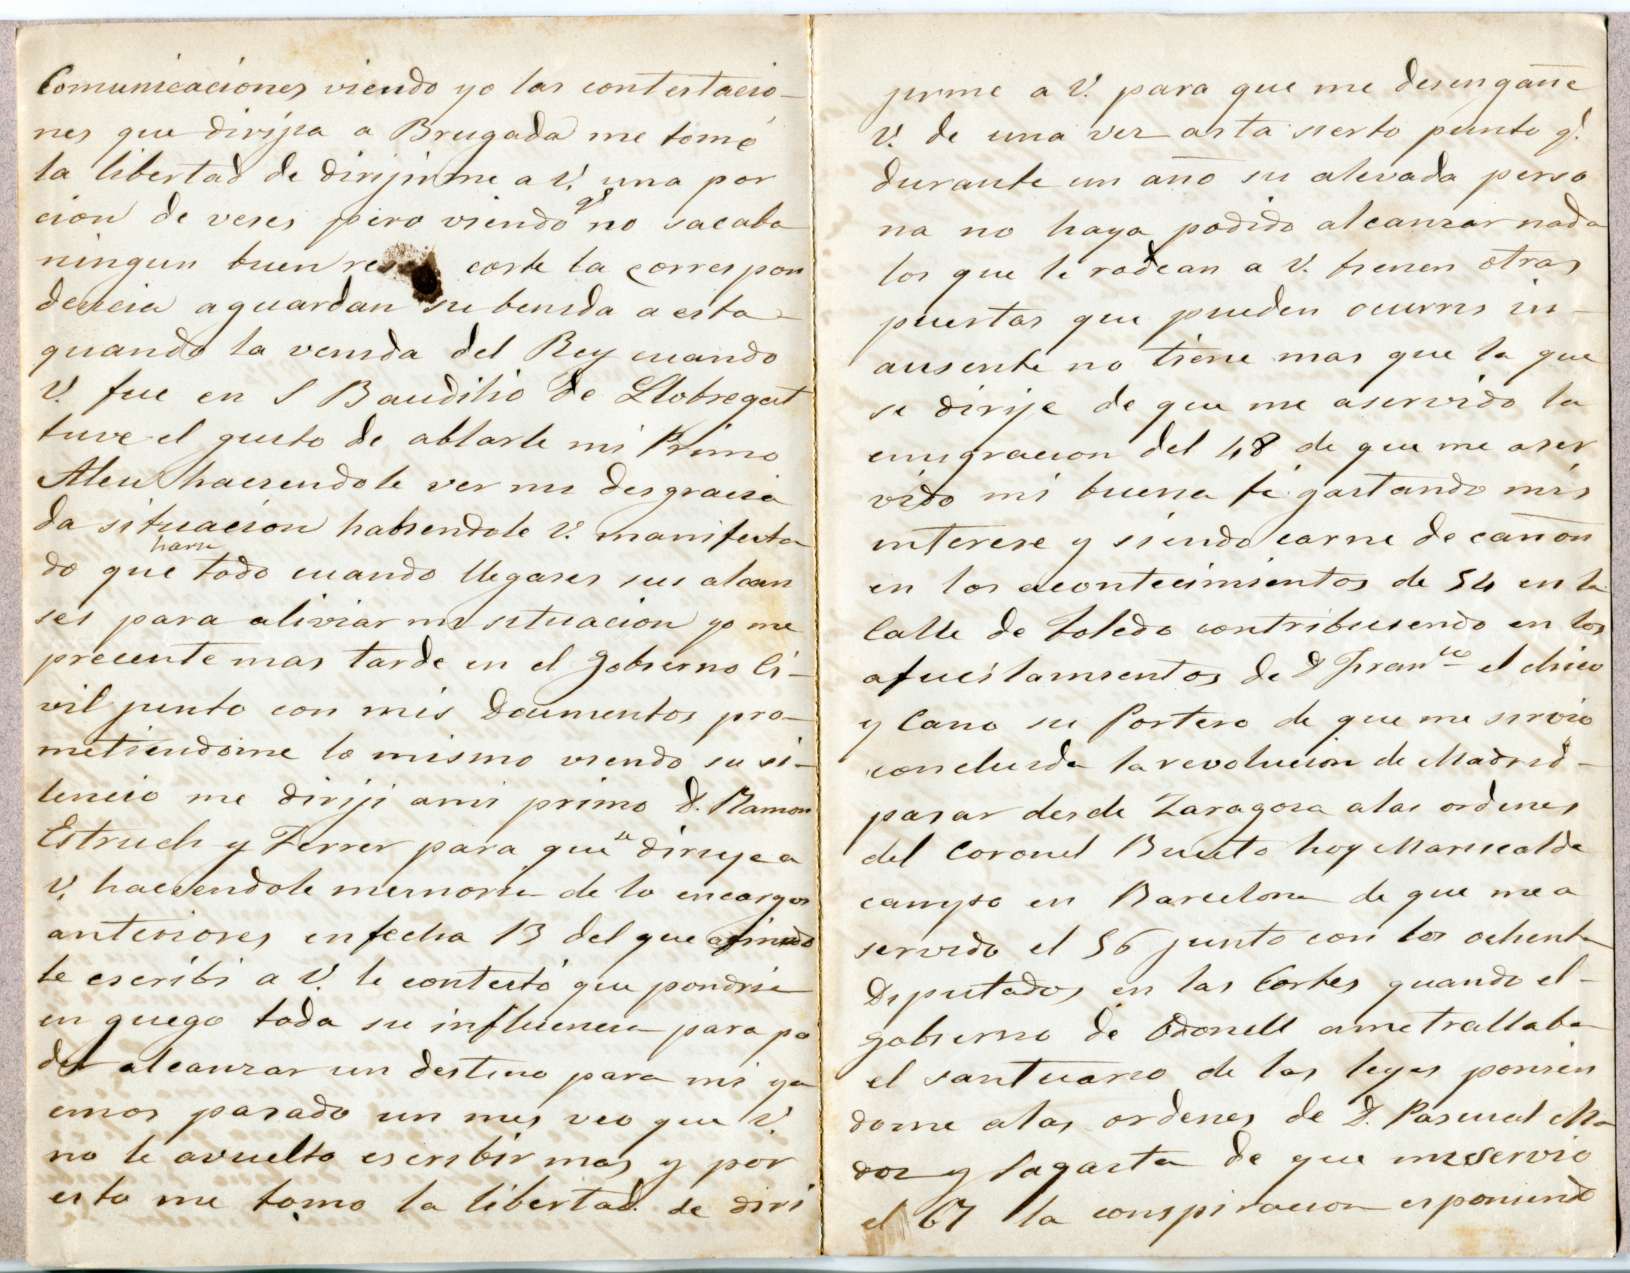 Comunicaciones viendo yo las contestacio-
nes que dirijia a Brugada me tomé
la libertad de dirijirme a V. una por
cion de veses pero viendo qe no sacaba
ningun buen corté la correspon
dencia aguardan su benida a esta
quando la venida del Rey cuando
V. fue en S Baudilio de Llobregat
tuve el gusto de ablarle mi Primo
Aleu haciendole ver mi desgracia
da situacion habiendole V. manifesta
do que haria todo cuando llegases sus alcan
ses para aliviar mi situacion yo me
precente mas tarde en el Gobierno Ci-
vil junto con mis Documentos pro-
metiendome lo mismo viendo su si-
lencio me diriji a mi primo D. Ramon
Estruch y Ferrer para que se dirije a
V. haciendole memoria de lo encargos
anteriores en fecha 13 del que
le escribi a V. le contestó que pondria
en guego toda su influencia para po
der alcanzar un destino para mi ya
emos pasado un mes veo que V.
no le avuelto escribir mas y por
esto me tomo la libertad de diri
jirme a V. para que me desengañe
V. de una vez asta sierto punto q.
durante un año su alevada perso
na no haya podido alcanzar nada
los que le rodean a V. tienen otras
puertas que pueden ocurrir in-
ausente no tiene mas que la que
se dirije de que me aservido la
emigracion del 48 de que me aser
vido mi buena fé gastando mis
interese y siendo carne de cañon
en los acontecimientos de 54 en la
Calle de Toledo contribuiendo en los
afucilamientos de D Franco el chico
y Cano su Portero de que me servio
concluida la revolucion de Madrid-
pasar desde Zaragosa a las ordenes
del Coronel Buesto hoy Mariscal de
campo en Barcelona de que me a
servido el 56 junto con los ochenta
Diputados en las Cortes quando el-
gobierno de Odonell ametrallaba
el santuario de las leyes ponien
dome a las ordenes de D. Pascual Ma
doz y Sagasta de que me servio
el 67 la conspiracion esponiendo